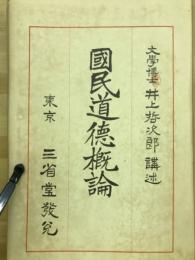 文學博士井上哲次郎講述
國民道德概論
東京 三省堂發兌